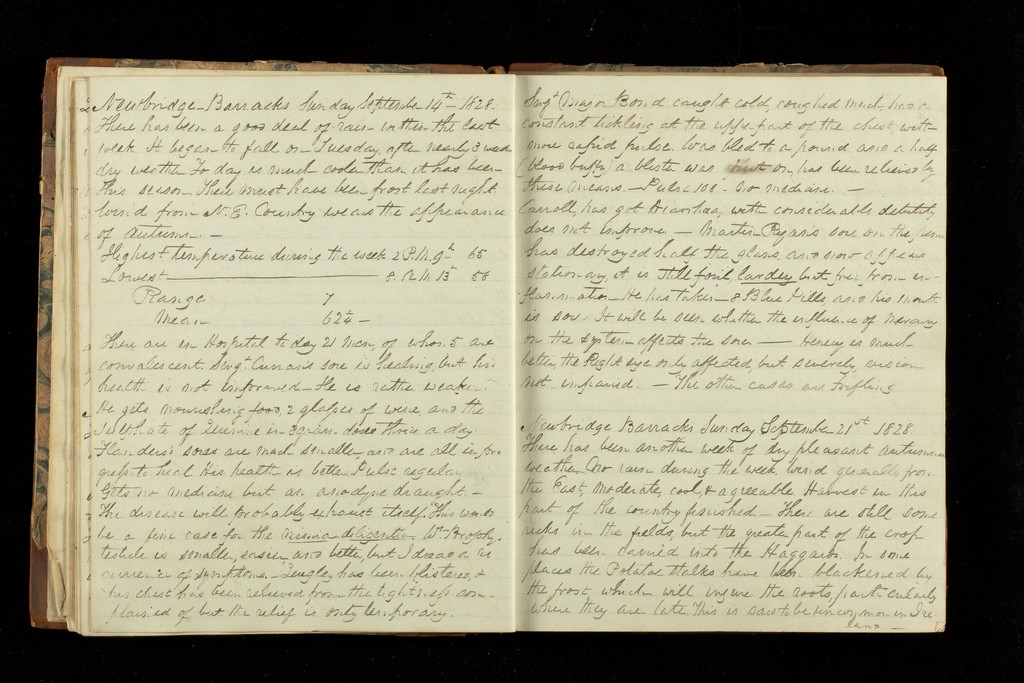 Newbridge Barracks Sunday September 14th 1828.
There has been a good deal of rain within the last
week. It began to fall on Tuesday, after nearly 3 weeks
dry weather. To day is much cooler than it has been
this season. There must have been frost last night
Wind from N.E. Country wears the appearance
of Autumn. —
Highest temperature during the week 2 P.M. 9th 65
Lowest ———— 8. A.M. 13th 58
Range 7
Mean 62¼ —
There are in Hospital to day 21 men, of whom 5 are
convalescent. Sergt. sore is healing, but his
health is not improved — He is rather weaker. —
He gets nourishing food, 2 glasses of wine, and the
Sulphate of Quinine in 3 grain doses thrice a day
Flanders's sores are much smaller, and are all in pro
gress to heal His health is better. Pulse regular
Gets no medicine but an anodyne draught. —
The disease will probably exhaust itself. This wou'd
be a fine case for the diligentia. Wm. Brophy's
testicle is smaller, easier and better, but I dread a re
currence of symptoms. — has been blistered, &
his chest has been relieved from the tightness com-
plained of but the relief is only temporary.
Sergt Major Bond caught cold, coughed much, has a
constant tickling at the upper part of the chest, with
more rapid pulse. Was bled to a pound and a half
(blood buffy) a blister was put on, has been relieved by
these means. — Pulse 108. No medicine. —
Carroll, has got Diarrhoea, with considerable debility
does not improve — Martin Ryan's sore on the penis
has destroyed half the glans, and now appears
stationary, it is still foul lardey but free from in-
flammation He has taken 8 Blue Pills, and his mouth
is sore. It will be seen whether the influence of Mercury
on the system affects the sores — Henesy is much
better, the Right eye only affected, but severely, vision
not impaired. — The other cases are trifling
Newbridge Barracks Sunday September 21st 1828.
There has been another week of dry pleasant autumnal
weather, No rain during the week, wind generally from
the East, moderate, cool, & agreeable Harvest in this
part of the country finished — There are still some
ricks in the fields, but the greater part of the crop
has been carried into the Haggards. In some
places the Potatoe stalks have been blackened by
the frost which will injure the roots, particularly
where they are late. This is said to be uncommon in Ire
land —